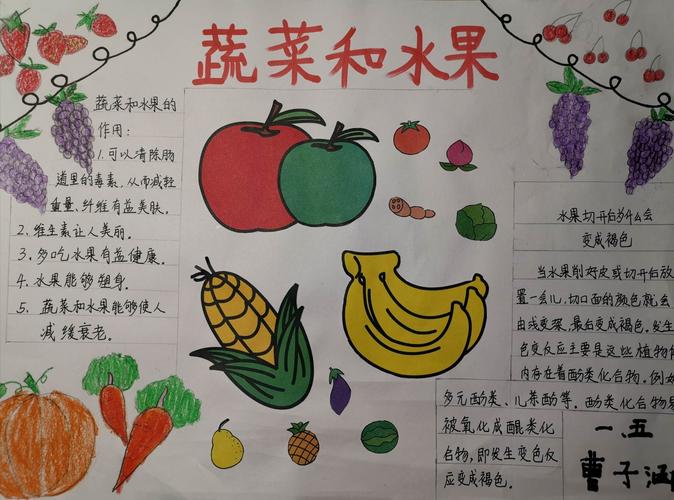 蔬菜和水果
蔬菜和水果的
作用：
1.可以清除肠
道里的毒素，从而减轻
重量、纤维有益美肤。
2、维生素让人美丽。
3、多吃水果有益健康。
4、水果能够塑身。
5、蔬菜和水果能够使人
减缓衰老。
水果切开后为什么会
变成褐色
当水果削好皮或切开后放
置一会儿，切口面的颜色就会
由浅变深，最后变成褐色。发生
色变反应主要是这些植物
内存在着酚类化合物。例如
多元酚类、儿茶酚等。酚类化合物易
被氧化成醌类化
合物，即发生变色反
应变成褐色。
一.五
曹子涵